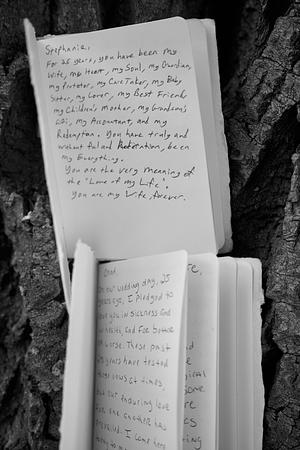 Stephanie,
For 25 years, you have been my
Wife, my Heart, my Soul, my Guardian,
my Protator, my Care Taker, my Baby
Sitter, my Lover, my Best Friend,
my Children's Mother, my Grandson's
my Accountant, and my
Redemption. You have truly and
without fail and been
my Everything.
You are the very meaning of
the "Love of my Life".
You are my Wife, forever.
Chad,
On our wedding day, 25
years ago, I pledged to
love you in sickness and
in health, and for better
or worse. These past
25 years have tested
those vows at times,
but our enduring love
for one another has
prevailed. I come here
today to